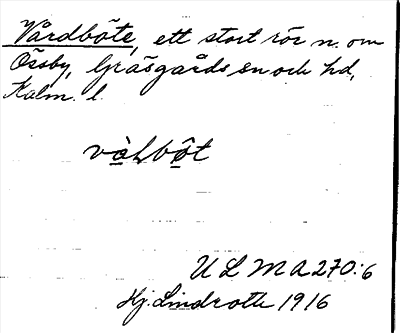 Vårdböte, ett stort rör n. om
Össby, Gräsgårds sn och hd,
Kalm. l.
vàLbö̂t
ULMA 270:6
Hj. Lindroth 1916